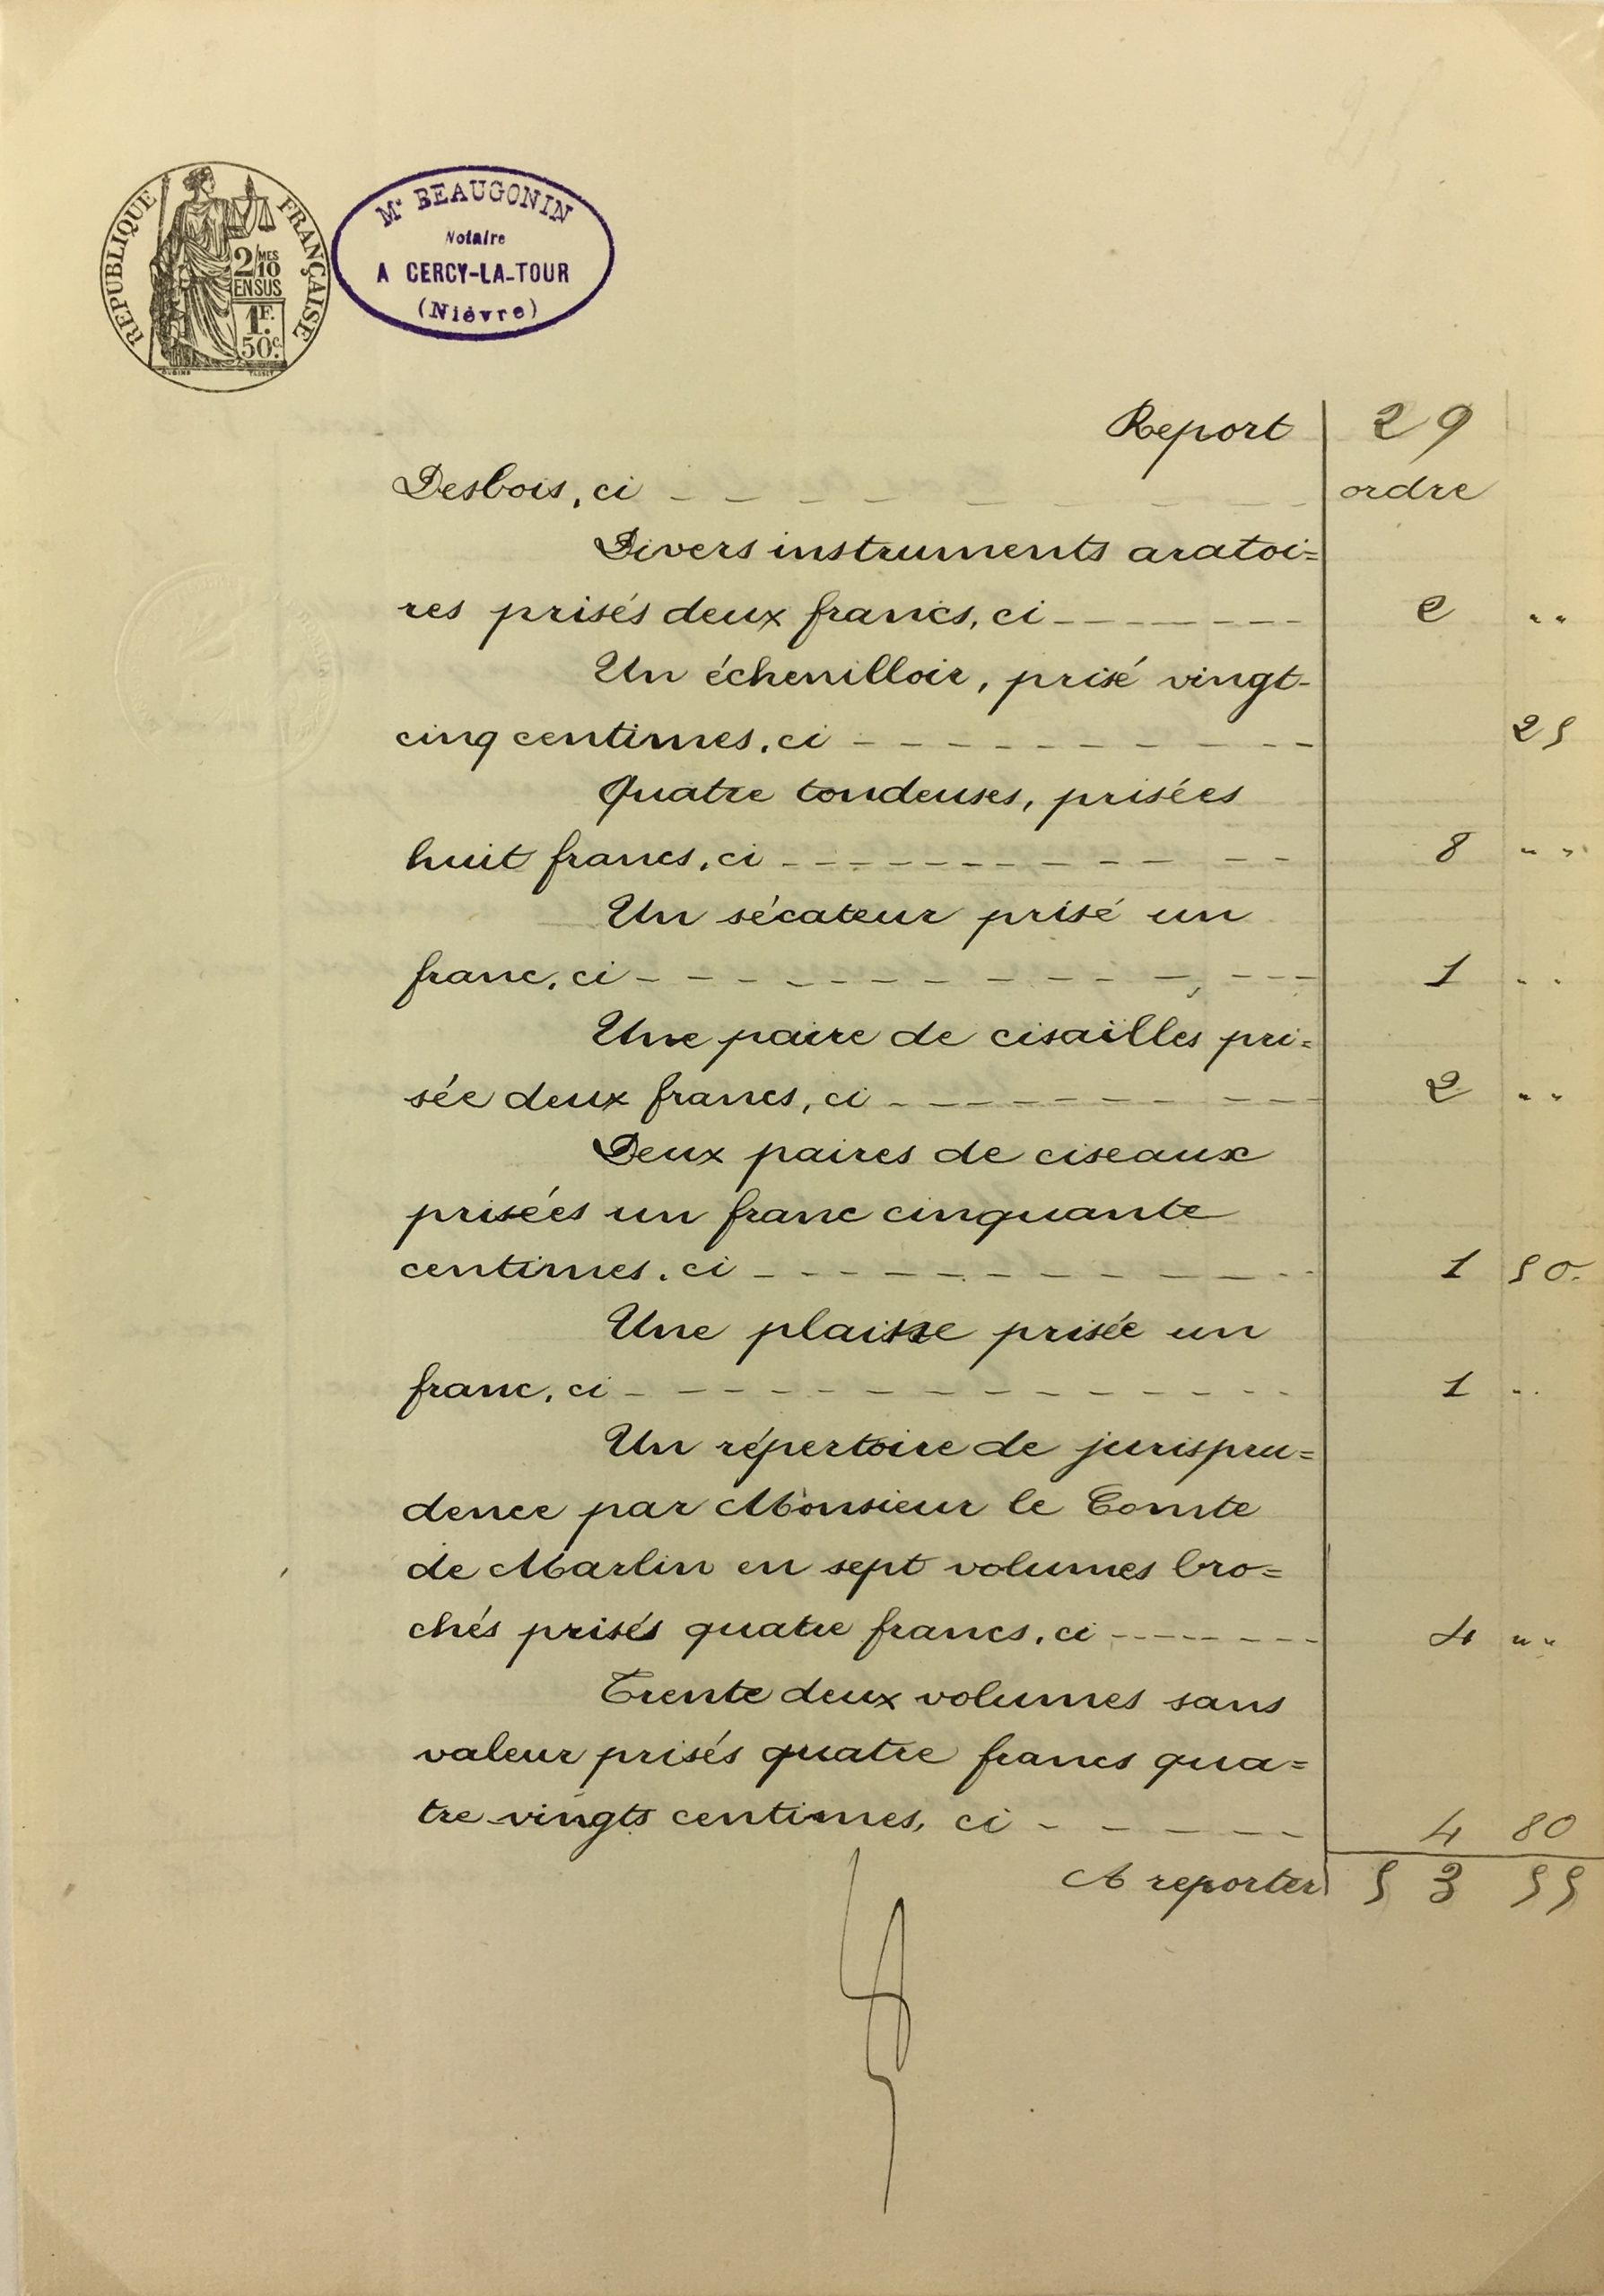 RÉPUBLIQUE FRANÇAISE
2/MES
10
EN SUS
1F.
50c.
Me BEAUGONIN
Notaire
A CERCY-LA-TOUR
(Nièvre)
Report 29
Desbois, ci ordre
Divers instruments aratoi=
res prisés deux francs, ci 2 ..
Un échenilloir, prisé vingt-
cinq centimes, ci 25
Quatre tondeuses, prisées
huit francs, ci 8 ..
Un sécateur prisé un
franc, ci 1 ..
Une paire de cisailles pri=
sée deux francs, ci 2 ..
Deux paires de ciseaux
prisées un franc cinquante
centimes, ci 1 50
Une prisée un
franc, ci 1 ..
Un répertoire de jurispru=
dence par Monsieur le Comte
de Marlin en sept volumes bro=
chés prisés quatre francs, ci 4 ..
Trente deux volumes sans
valeur prisés quatre francs qua=
tre-vingts centimes, ci 4 80
A reporter 53 55